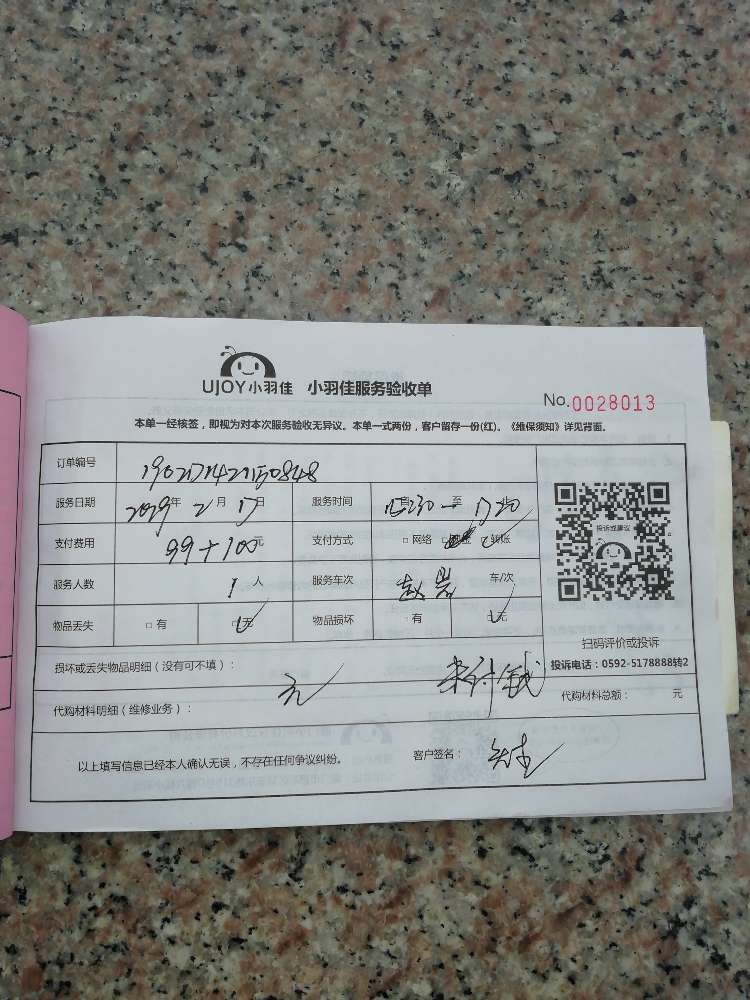 UJOY小羽佳 小羽佳服务验收单
No.0028013
本单一经核签，即视为对本次服务验收无异议。本单一式两份，客户留存一份(红)。《维保须知》详见背面。
订单编号
服务日期 年 2 月 17 日 服务时间 至
支付费用 99+100 元 支付方式 □ 网络 转账
投诉或建议
服务人数 1 人 服务车次 车/次
物品丢失 □ 有 □无 物品损坏 □ 有 □无
扫码评价或投诉
损坏或丢失物品明细（没有可不填）：
投诉电话：0592-5178888转2
无 未付钱
代购材料明细（维修业务）：
代购材料总额： 元
以上填写信息已经本人确认无误，不存在任何争议纠纷。 客户签名：